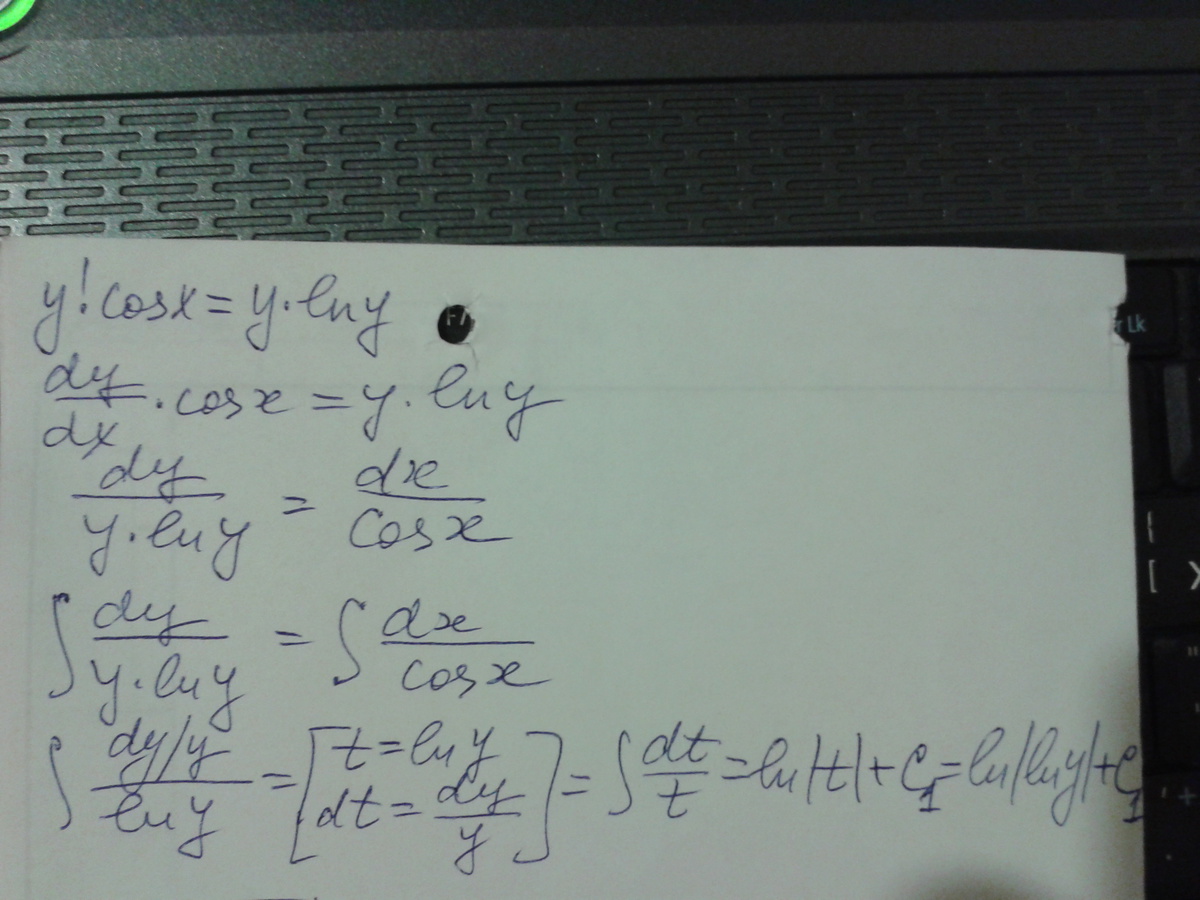 y'cosx = y·ln y
dy/dx · cosx = y·ln y
dy/(y·ln y) = dx/cosx
∫ dy/(y·ln y) = ∫ dx/cosx
∫ (dy/y)/ln y = [t = ln y dt = dy/y] = ∫ dt/t = ln|t| + C₁ = ln|ln y| + C₁
F7
r Lk
{
[
X
"
'
+